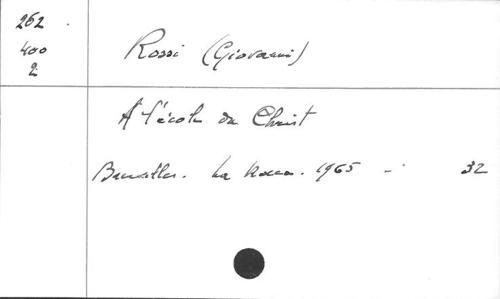 262
400
2
Rossi (Giovanni)
A l'école du Christ
Bruxelles. La 1965 - 32